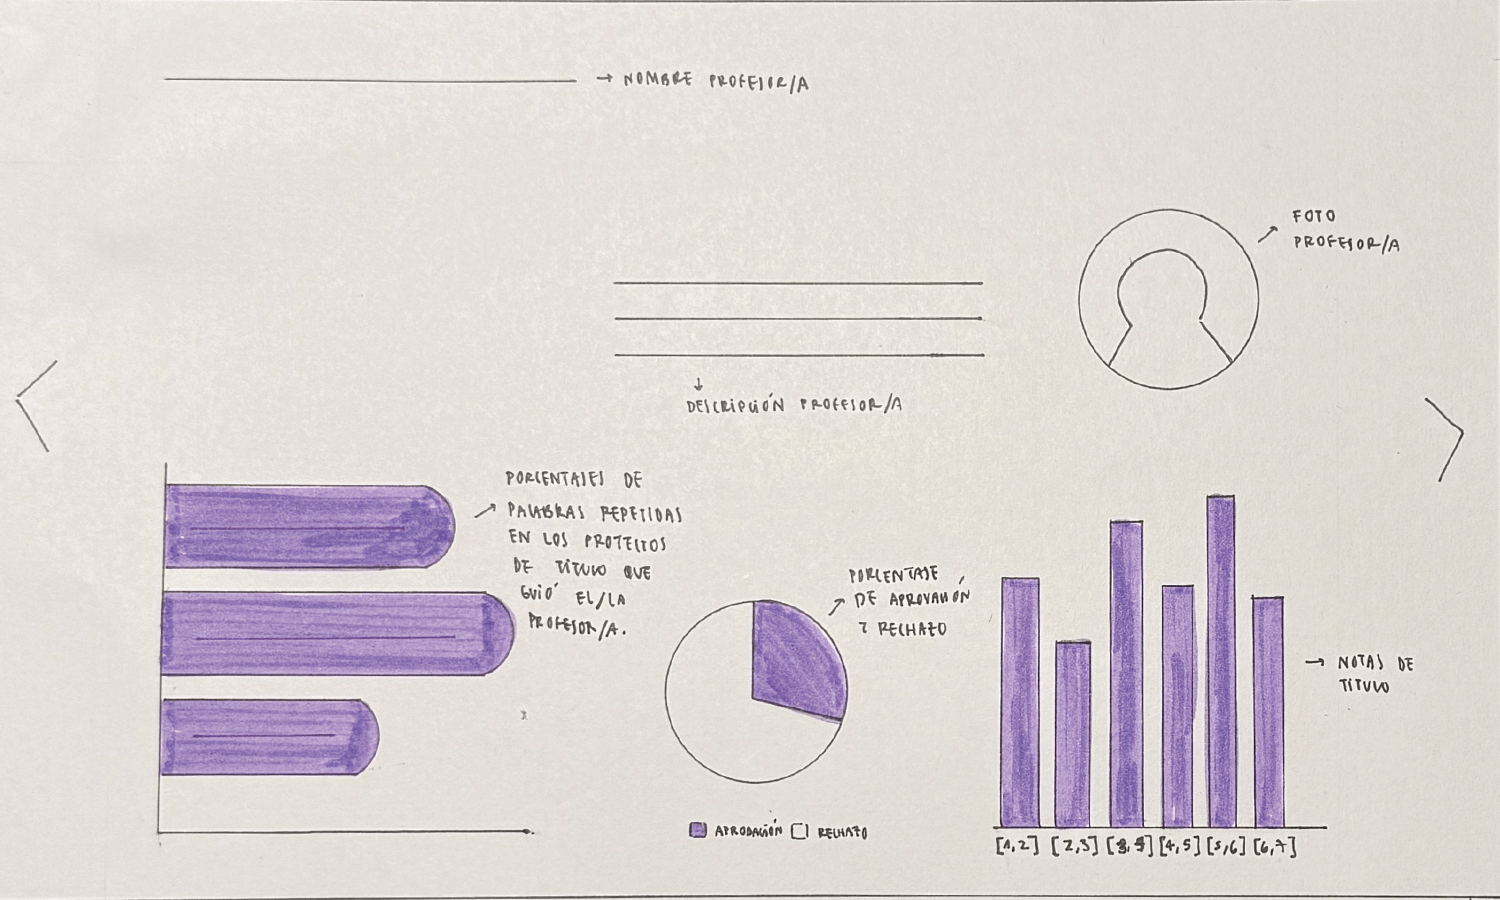 → NOMBRE PROFESOR/A
FOTO
PROFESOR/A
DESCRIPCIÓN PROFESOR/A
PORCENTAJES DE
PALABRAS REPETIDAS
EN LOS PROYECTOS
DE TÍTULO QUE
GUIÓ EL/LA
PROFESOR/A.
PORCENTAJE
DE APROVACIÓN
Y RECHAZO
→ NOTAS DE
TÍTULO
APROBACIÓN RECHAZO
[1,2] [2,3] [3,4] [4,5] [5,6] [6,7]